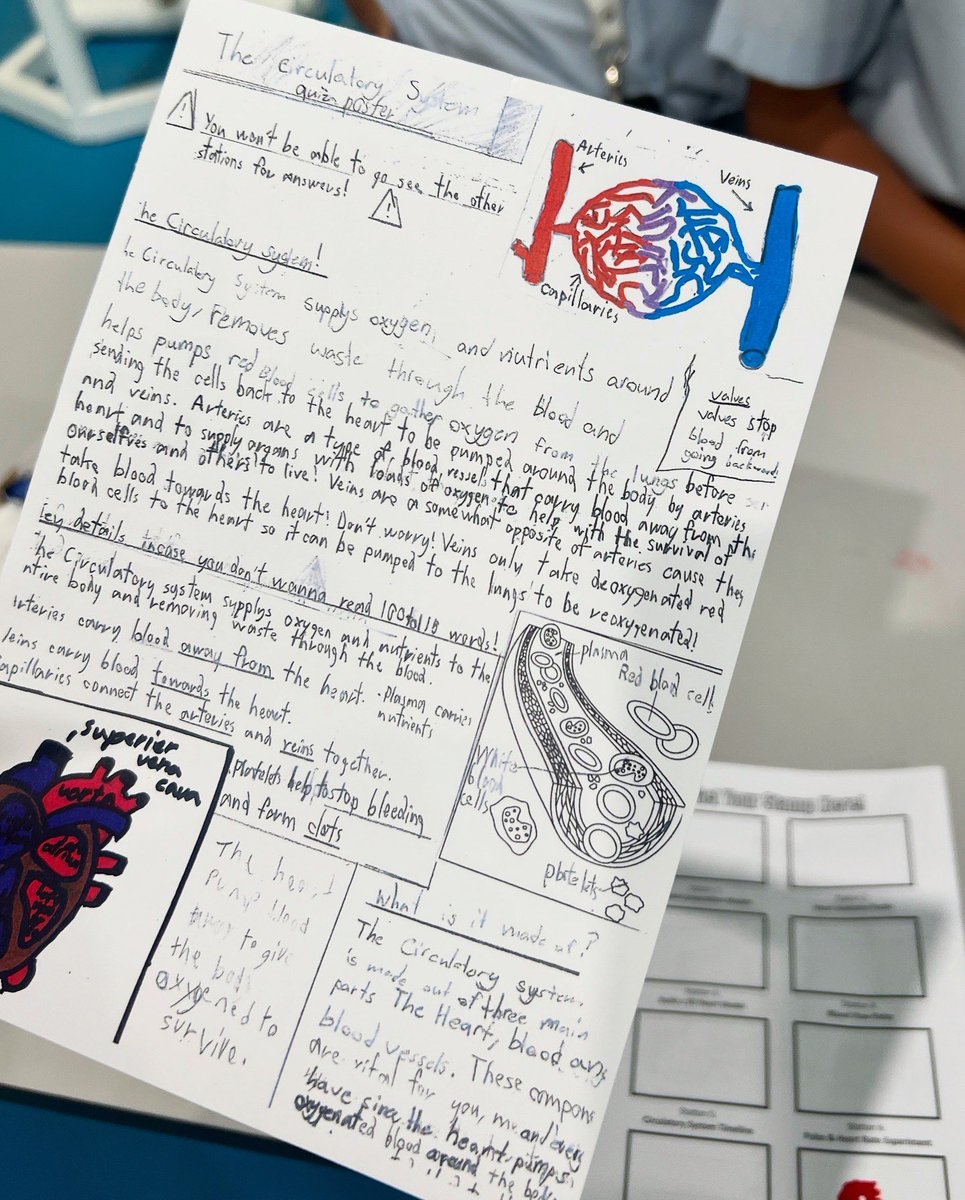 The Circulatory System
quiz poster
You won't be able to go see the other
stations for answers!
Arteries
Veins
Capillaries
he Circulatory system!
he Circulatory System supplys oxygen, and nutrients around
the body, removes waste through the blood and
helps pumps red Blood cells to gather oxygen from the lungs before
sending the cells back to the heart to be pumped around the body by arteries
and veins. Arteries are a type of blood vessels that carry blood away from the
heart and to supply organs with loads of oxygen to help with the survival of
ourselfves and others to live! Veins are a somewhat opposite of arteries cause they
take blood towards the heart! Don't worry! Veins only take deoxygenated red
blood cells to the heart so it can be pumped to the lungs to be reoxygenated!
valves
valves stop
blood from
going backward
ey details incase you don't wanna read words!
he Circulatory system supplys oxygen and nutrients to the
ntire body and removing waste through the blood.
rteries carry blood away from the heart.
eins carry blood towards the heart.
• Plasma carries
nutrients
apillaries connect the arteries and veins together.
• Platelets help to stop bleeding
and form clots
plasma
Red blood cell
White
blood
cells
platelets
superier
vera
cava
The heart
pump blood
to give
the body
oxygened to
survive.
What is it made of?
The Circulatory system
is made out of three main
parts The Heart, blood and
blood vessels. These compon
are vital for you, me and every
have since the heart pumps
oxygenated blood around the body
Station 5.
Circulatory System Timeline
Pulse & Heart Rate Experiment